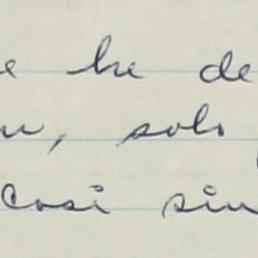 e he de
n, solo
casi sin